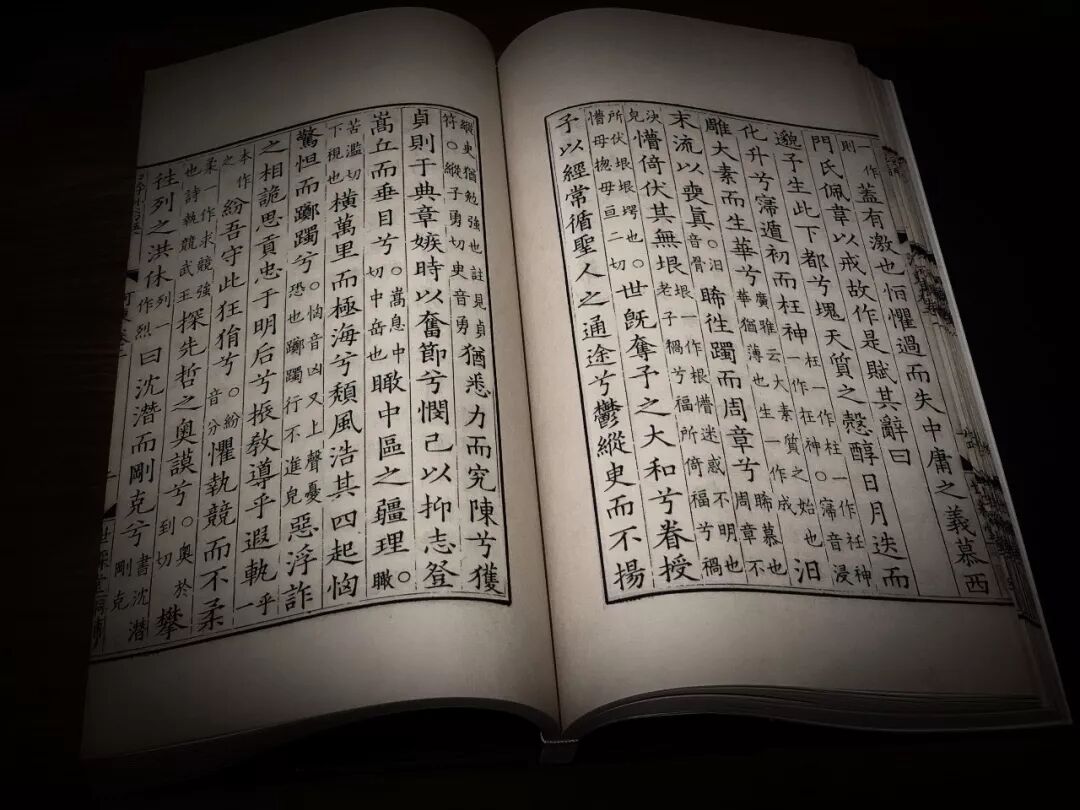 一作則蓋有激也恒懼過而失中庸之義慕西
門氏佩韋以戒故作是賦其辭曰
邈予生此下都兮塊天質之慤醇日月迭而
化升兮寖遁初而枉神枉一作柱一作任神一作狂神○寖音浸
雕大素而生華兮廣雅云大素質之始也華猶薄也生一作成汨
末流以喪眞○汨音骨睎徃躅而周章兮睎慕也周章不
決皃懵倚伏其無垠垠一作根懵迷惑不明也老子禍兮福所倚福兮禍
所伏垠垠堮也○懵母揔母亘二切世旣奪予之大和兮眷授
予以經常循聖人之通途兮鬱縱臾而不揚
縱臾猶勉強也註見貞符○縱子勇切臾音勇猶悉力而究陳兮獲
貞則于典章嫉時以奮節兮憫己以抑志登
嵩丘而垂目兮○嵩息中切中岳也瞰中區之疆理○瞰
苦濫切下視也橫萬里而極海兮頹風浩其四起恟
驚怛而躑躅兮○恟音凶又上聲憂恐也躑躅行不進皃惡浮詐
之相詭思貢忠于明后兮振敎導乎遐軌乎一
本作之紛吾守此狂狷兮○紛音分懼執競而不柔
柔一作求競強也詩執競武王探先哲之奧謨兮○奧於到切攀
徃列之洪休列一作烈曰沈潛而剛克兮書沈潛剛克